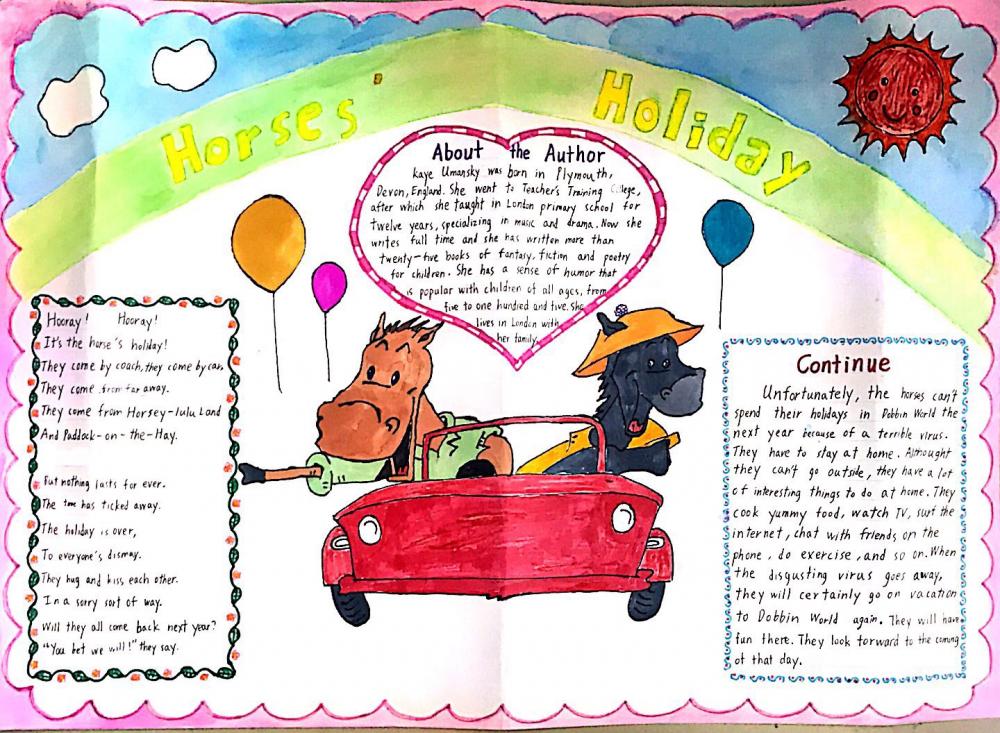 Horses' Holiday
About the Author
Kaye Umansky was born in Plymouth,
Devon, England. She went to Teacher's Training College,
after which she taught in London primary school for
twelve years, specializing in music and drama. Now she
writes full time and she has written more than
twenty-five books of fantasy, fiction and poetry
for children. She has a sense of humor that
is popular with children of all ages, from
five to one hundred and five. She
lives in London with
her family.
Hooray! Hooray!
It's the horse's holiday!
They come by coach, they come by car,
They come from far away.
They come from Horsey-lulu Land
And Paddock-on-the-Hay.
But nothing lasts for ever.
The time has ticked away.
The holiday is over,
To everyone's dismay.
They hug and kiss each other.
In a sorry sort of way.
Will they all come back next year?
"You bet we will!" they say.
Continue
Unfortunately, the horses can't
spend their holidays in Dobbin World the
next year because of a terrible virus.
They have to stay at home. Althought
they can't go outside, they have a lot
of interesting things to do at home. They
cook yummy food, watch TV, surf the
internet, chat with friends on the
phone, do exercise, and so on. When
the disgusting virus goes away,
they will certainly go on vacation
to Dobbin World again. They will have
fun there. They look forward to the coming
of that day.